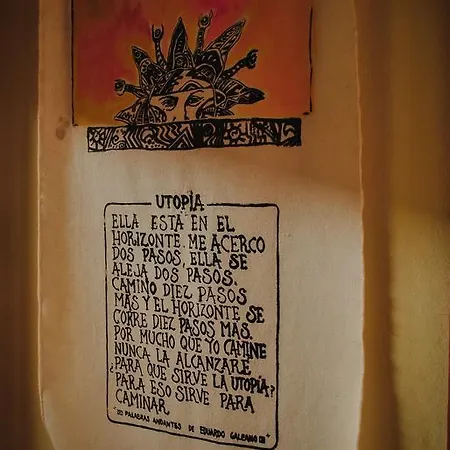 UTOPÍA
ELLA ESTÁ EN EL
HORIZONTE. ME ACERCO
DOS PASOS, ELLA SE
ALEJA DOS PASOS.
CAMINO DIEZ PASOS
MÁS Y EL HORIZONTE SE
CORRE DIEZ PASOS MÁS.
POR MUCHO QUE YO CAMINE
NUNCA LA ALCANZARÉ
¿PARA QUÉ SIRVE LA UTOPÍA?
PARA ESO SIRVE PARA
CAMINAR
PALABRAS ANDANTES DE EDUARDO GALEANO